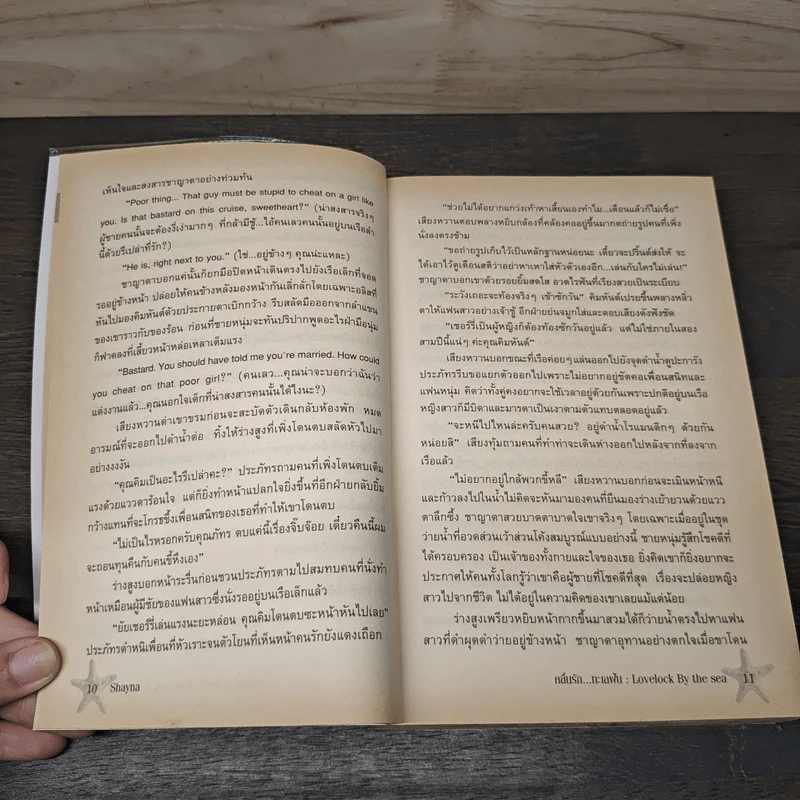 เห็นใจและสงสารชาญาดาอย่างท่วมท้น
"Poor thing... That guy must be stupid to cheat on a girl like
you. Is that bastard on this cruise, sweetheart?" (น่าสงสารจริงๆ
ผู้ชายคนนั้นจะต้องงี่เง่ามากๆ ที่กล้ามีชู้...ไอ้คนเลวคนนั้นอยู่บนเรือลำ
นี้ด้วยรึเปล่าที่รัก?)
"He is, right next to you." (ใช่...อยู่ข้างๆ คุณน่ะแหละ)
ชาญาดาบอกแค่นั้นก็ยกมือปิดหน้าเดินตรงไปยังเรือเล็กที่จอด
รออยู่ข้างหน้า ปล่อยให้คนข้างหลังมองหน้ากันเลิ่กลั่กโดยเฉพาะอลิสที่
หันไปมองคิมหันต์ด้วยประกายตาเบิกกว้าง รีบสลัดมือออกจากลำแขน
ของเขาราวกับของร้อน ก่อนที่ชายหนุ่มจะทันปริปากพูดอะไรฝ่ามือนุ่ม
ก็ฟาดลงที่เสี้ยวหน้าหล่อเหลาเต็มแรง
"Bastard. You should have told me you're married. How could
you cheat on that poor girl?" (คนเลว...คุณน่าจะบอกว่าฉันว่า
แต่งงานแล้ว...คุณนอกใจเด็กที่น่าสงสารคนนั้นได้ไงนะ?)
เสียงหวานด่าเขาขรมก่อนจะสะบัดตัวเดินกลับห้องพัก หมด
อารมณ์ที่จะออกไปดำน้ำต่อ ทิ้งให้ร่างสูงที่เพิ่งโดนตบสลัดหัวไปมา
อย่างงงงัน
"คุณคิมเป็นอะไรรึเปล่าคะ?" ประภัทรถามคนที่เพิ่งโดนตบเต็ม
แรงด้วยแววตาร้อนใจ แต่ก็ยิ่งทำหน้าแปลกใจยิ่งขึ้นที่อีกฝ่ายกลับยิ้ม
กว้างแทนที่จะโกรธขึ้งเพื่อนสนิทของเธอที่ทำให้เขาโดนตบ
"ไม่เป็นไรหรอกครับคุณภัทร ตบแค่นี้เรื่องจิ๊บจ๊อย เดี๋ยวคืนนี้ผม
จะถอนทุนคืนกับคนขี้หึงเอง"
ร่างสูงบอกหน้าระรื่นก่อนชวนประภัทรตามไปสมทบคนที่นั่งทำ
หน้าเหมือนผู้มีชัยของแฟนสาวซึ่งนั่งรออยู่บนเรือเล็กแล้ว
"ยัยเชอร์รี่เล่นแรงนะยะหล่อน คุณคิมโดนตบซะหน้าหันไปเลย"
ประภัทรตำหนิเพื่อนที่หัวเราะจนตัวโยนที่เห็นหน้าคนรักยังแดงเถือก
10 Shayna
"ช่วยไม่ได้อยากแกว่งเท้าหาเสี้ยนเองทำไม...เตือนแล้วก็ไม่เชื่อ"
เสียงหวานตอบพลางหยิบกล้องที่คล้องคออยู่ขึ้นมากดถ่ายรูปคนที่เพิ่ง
นั่งลงตรงข้าม
"ขอถ่ายรูปเก็บไว้เป็นหลักฐานหน่อยนะ เดี๋ยวจะปริ้นต์ส่งให้ จะ
ได้เอาไว้ดูเตือนสติว่าอย่าหาเหาใส่หัวตัวเองอีก...เล่นกับใครไม่เล่น!"
ชาญาดาบอกเขาด้วยรอยยิ้มสดใส อวดไรฟันที่เรียงสวยเป็นระเบียบ
"ระวังเถอะจะท้องจริงๆ เข้าซักวัน" คิมหันต์เปรยขึ้นพลางหลิ่ว
ตาให้แฟนสาวอย่างเจ้าชู้ อีกฝ่ายย่นจมูกใส่และตอบเสียงดังฟังชัด
"เชอร์รี่เป็นผู้หญิงก็ต้องท้องซักวันอยู่แล้ว แต่ไม่ใช่ภายในสอง
สามปีนี้แน่ๆ ค่ะคุณคิมหันต์"
เสียงหวานบอกขณะที่เรือค่อยๆ แล่นออกไปยังจุดดำน้ำดูปะการัง
ประภัทรรีบขอแยกตัวออกไปเพราะไม่อยากอยู่ขัดคอเพื่อนสนิทและ
แฟนหนุ่ม คิดว่าทั้งคู่คงอยากจะใช้เวลาอยู่ด้วยกันเพราะปกติอยู่บนเรือ
หญิงสาวก็มีบิดาและมารดาเป็นเงาตามตัวแทบตลอดอยู่แล้ว
"จะหนีไปไหนล่ะครับคนสวย? อยู่ดำน้ำโรแมนติกๆ ด้วยกัน
หน่อยสิ" เสียงทุ้มถามคนที่ทำท่าจะเดินห่างออกไปหลังจากที่ลงจาก
เรือแล้ว
"ไม่อยากอยู่ใกล้พวกขี้หลี" เสียงหวานบอกก่อนจะเมินหน้าหนี
และก้าวลงไปในน้ำไม่คิดจะหันมามองคนที่ยืนมองร่างเย้ายวนด้วยแวว
ตาลึกซึ้ง ชาญาดาสวยบาดตาบาดใจเขาจริงๆ โดยเฉพาะเมื่ออยู่ในชุด
ว่ายน้ำที่อวดส่วนเว้าส่วนโค้งสมบูรณ์แบบอย่างนี้ ชายหนุ่มรู้สึกโชคดีที่
ได้ครอบครอง เป็นเจ้าของทั้งกายและใจของเธอ ยิ่งคิดเขาก็ยิ่งอยากจะ
ประกาศให้คนทั้งโลกรู้ว่าเขาคือผู้ชายที่โชคดีที่สุด เรื่องจะปล่อยหญิง
สาวไปจากชีวิต ไม่ได้อยู่ในความคิดของเขาเลยแม้แต่น้อย
ร่างสูงเพรียวหยิบหน้ากากขึ้นมาสวมได้ก็ว่ายน้ำตรงไปหาแฟน
สาวที่ดำผุดดำว่ายอยู่ข้างหน้า ชาญาดาอุทานอย่างตกใจเมื่อขาโดน
คลื่นรัก...ทะเลฝัน : Lovelock By the sea 11